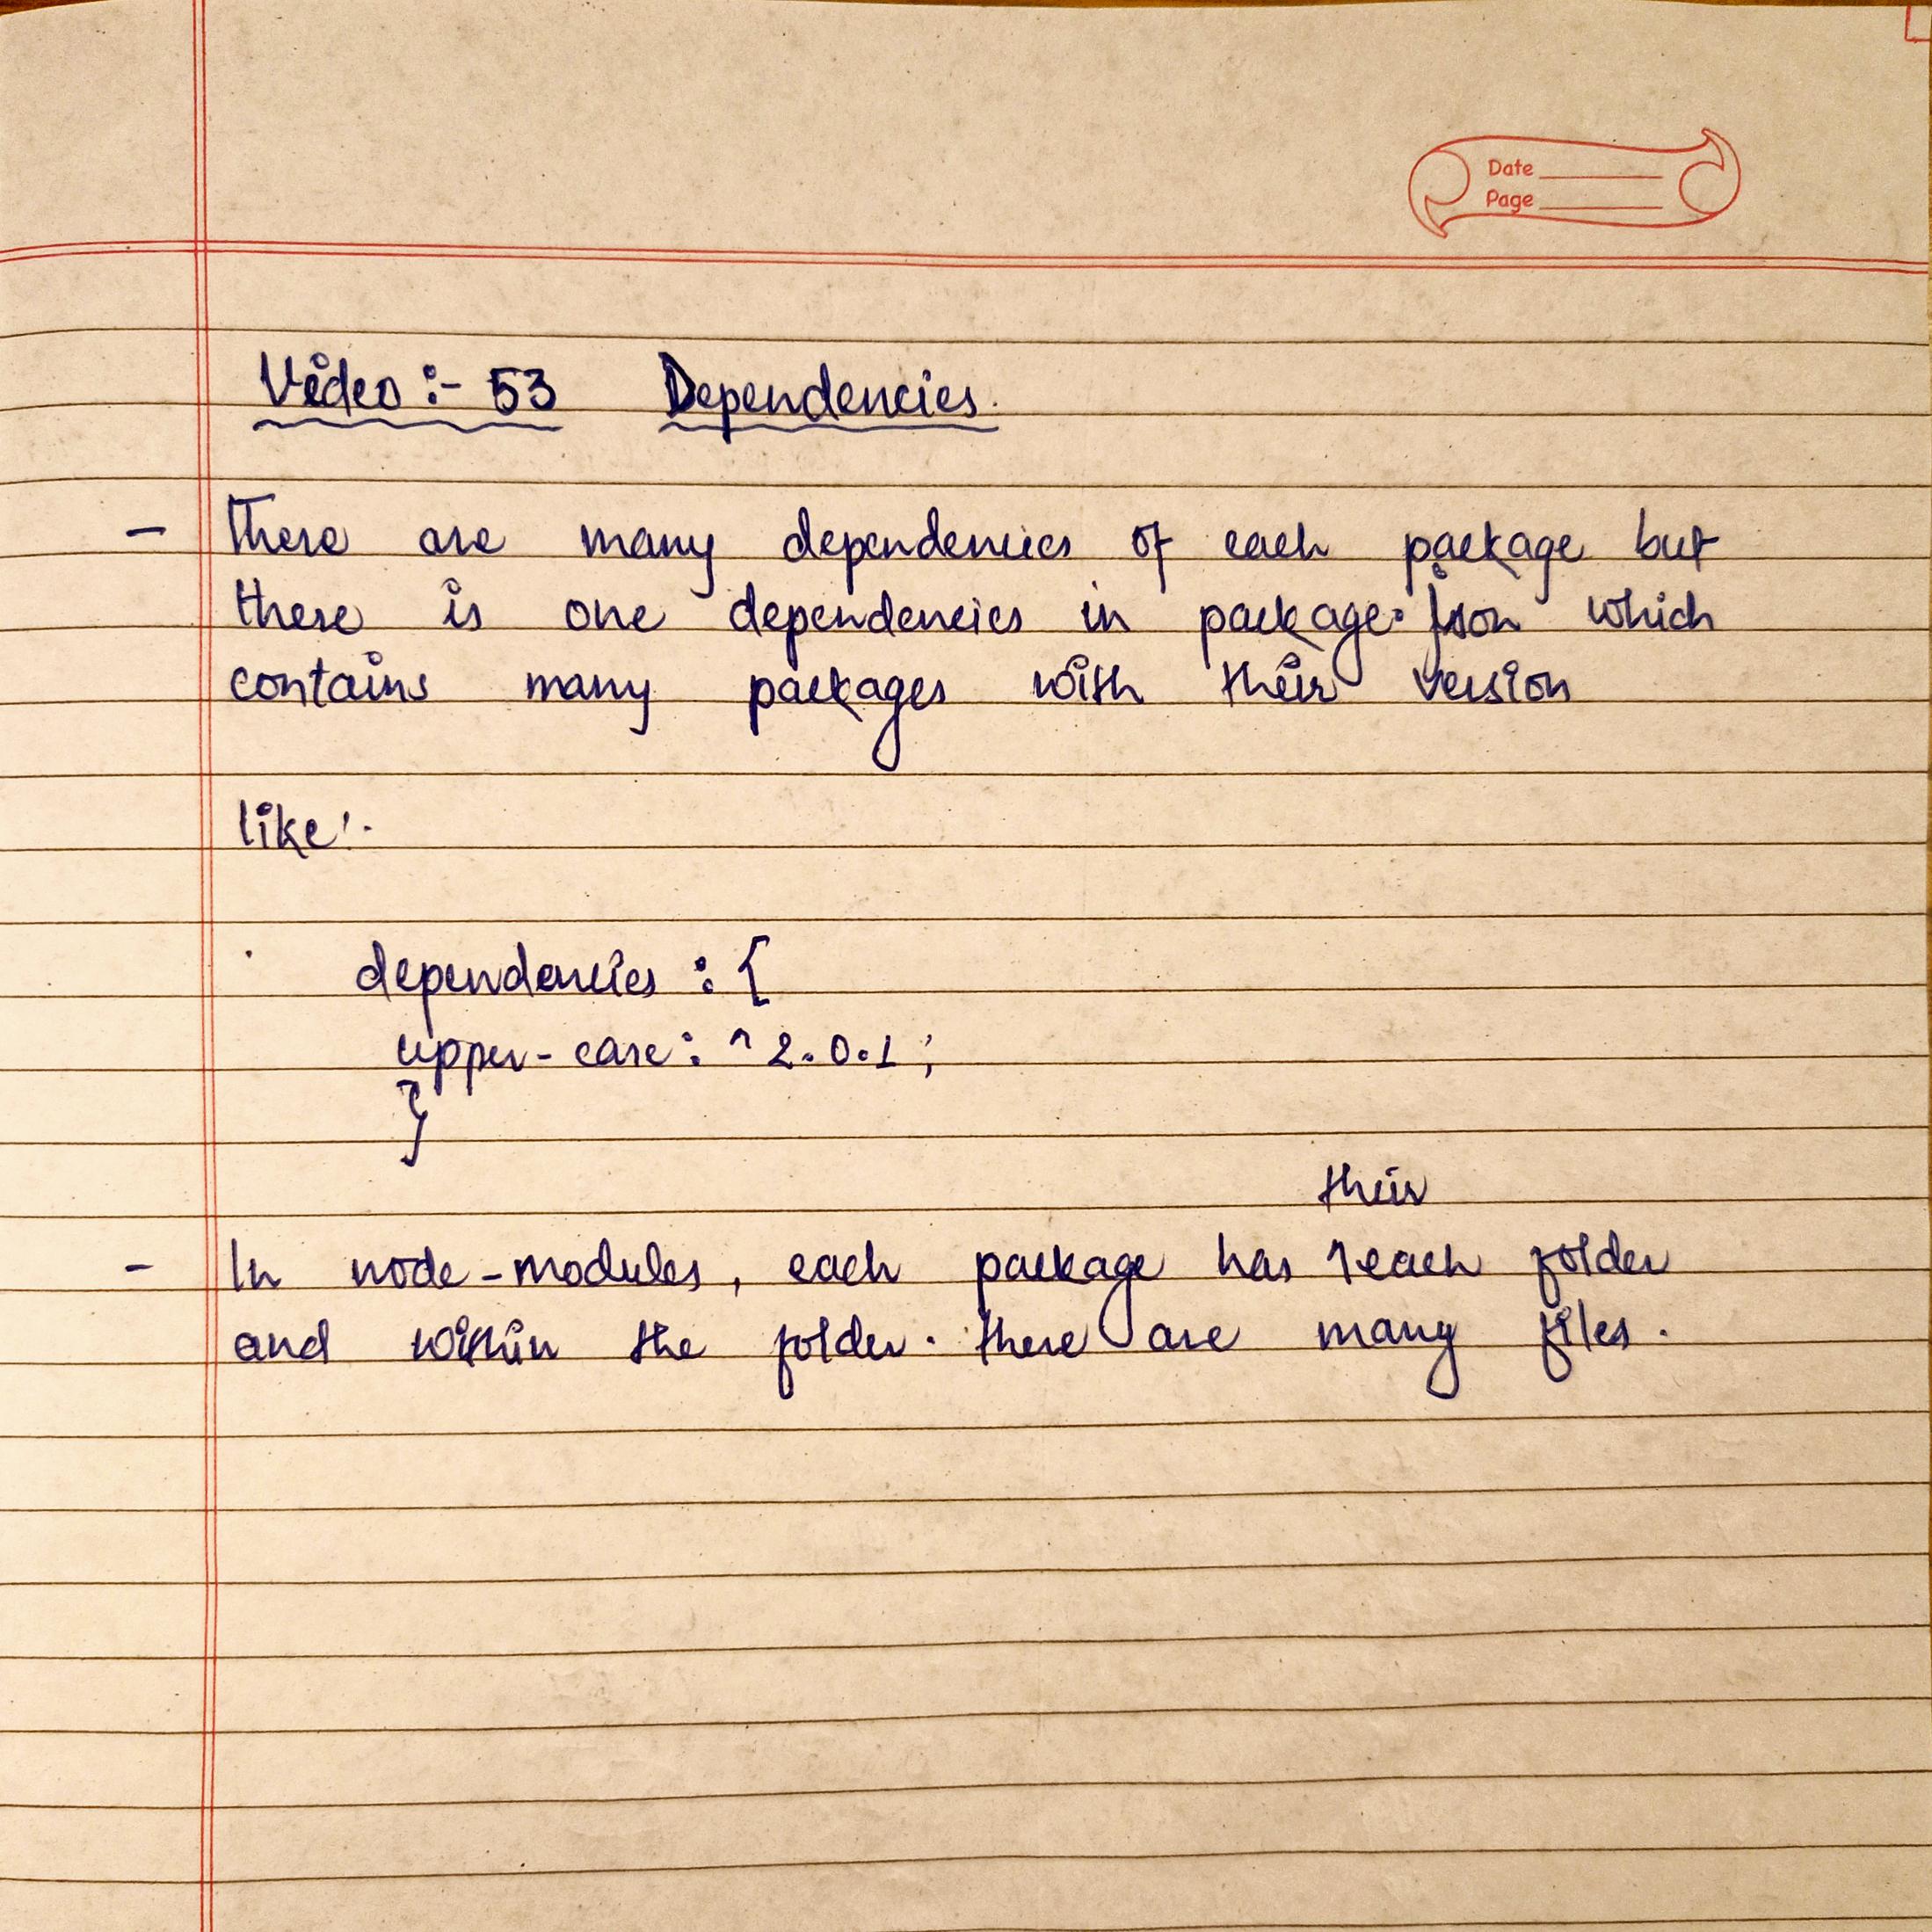 Date
Page
Video :- 53 Dependencies.
- There are many dependencies of each package but
there is one dependencies in package.json which
contains many packages with their version
like:-
dependencies : {
upper-case: ^2.0.1;
}
their
- In node-modules, each package has ^each folder
and within the folder. there are many files.